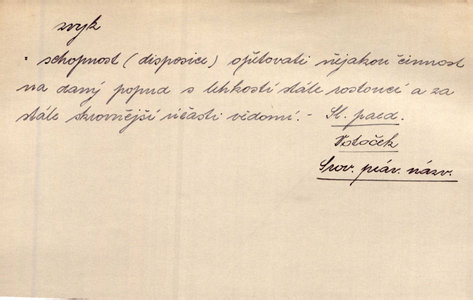 zvyk
schopnost (disposice) opětovati nějakou činnost
na daný popud s lehkostí stále rostoucí a za
stále skrovnější účasti vědomí. - Sl. paed.
Votoček
Srov. práv. názv.